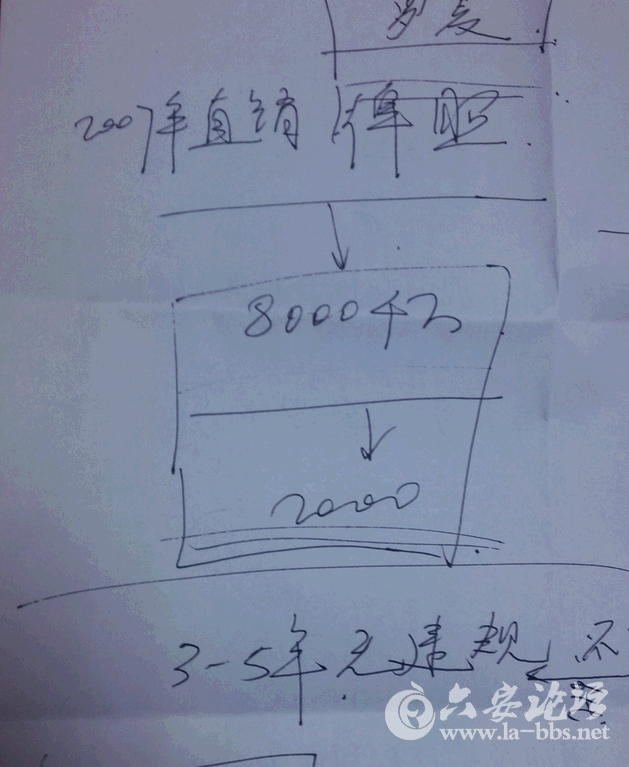 2007年直销 牌照
8000千亿
2000
3-5年无违规 不
六安论坛
www.la-bbs.net